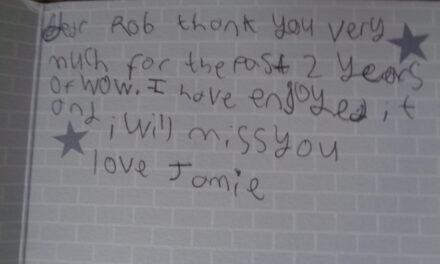 Dear Rob thank you very
much for the past 2 years
of wow. I have enjoyed it
and i will miss you
love Jamie